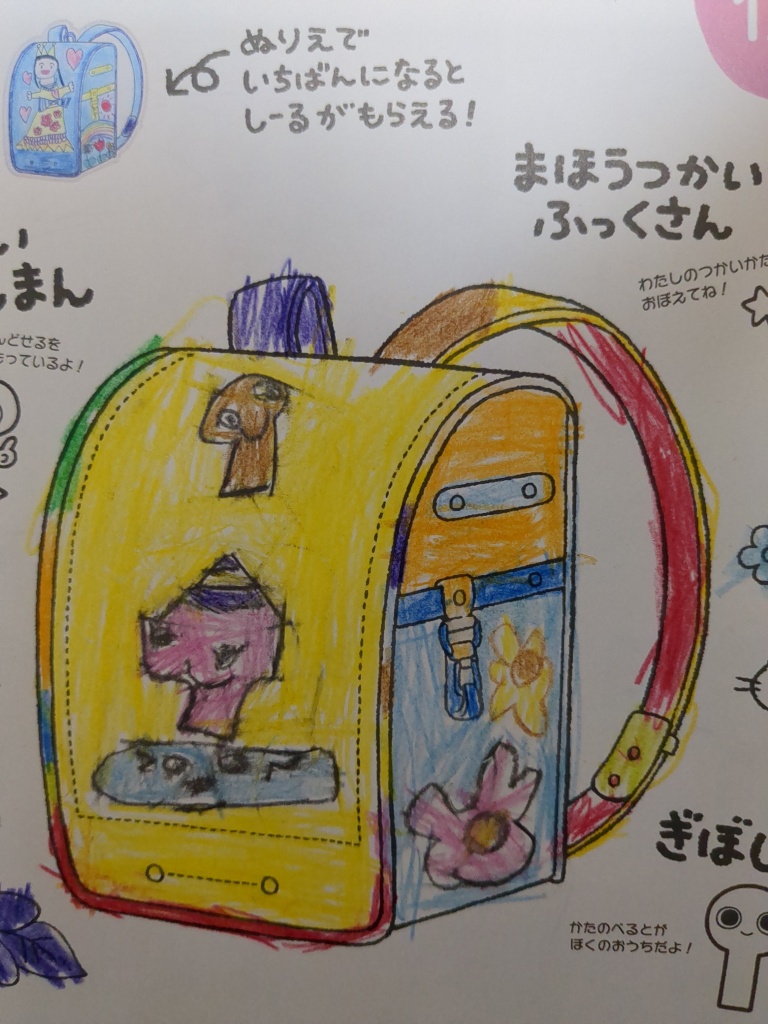 ぬりえで
いちばんになると
しーるがもらえる!
まほうつかい
ふっくさん
わたしのつかいかた
おぼえてね!
い
まん
んどせるを
もっているよ!
ぎぼし
かたのべるとが
ぼくのおうちだよ!